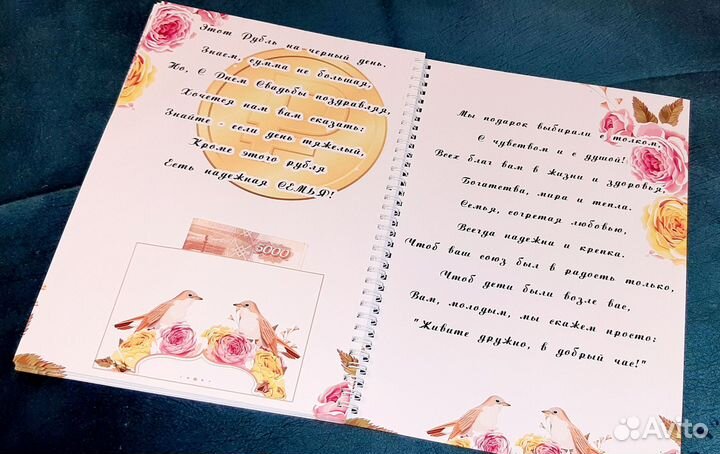 Этот Рубль на черный день.
Знаем, сумма не большая,
Но, С Днем Свадьбы поздравляя,
Хочется нам вам сказать:
Знайте - если день тяжелый,
Кроме этого рубля
Есть надежная СЕМЬЯ!
5000
Мы подарок выбирали с толком,
С чувством и с душой!
Всех благ вам в жизни и здоровья,
Богатства, мира и тепла.
Семья, согретая любовью,
Всегда надежна и крепка.
Чтоб ваш союз был в радость только,
Чтоб дети были возле вас,
Вам, молодым, мы скажем просто:
"Живите дружно, в добрый час!"
Avito